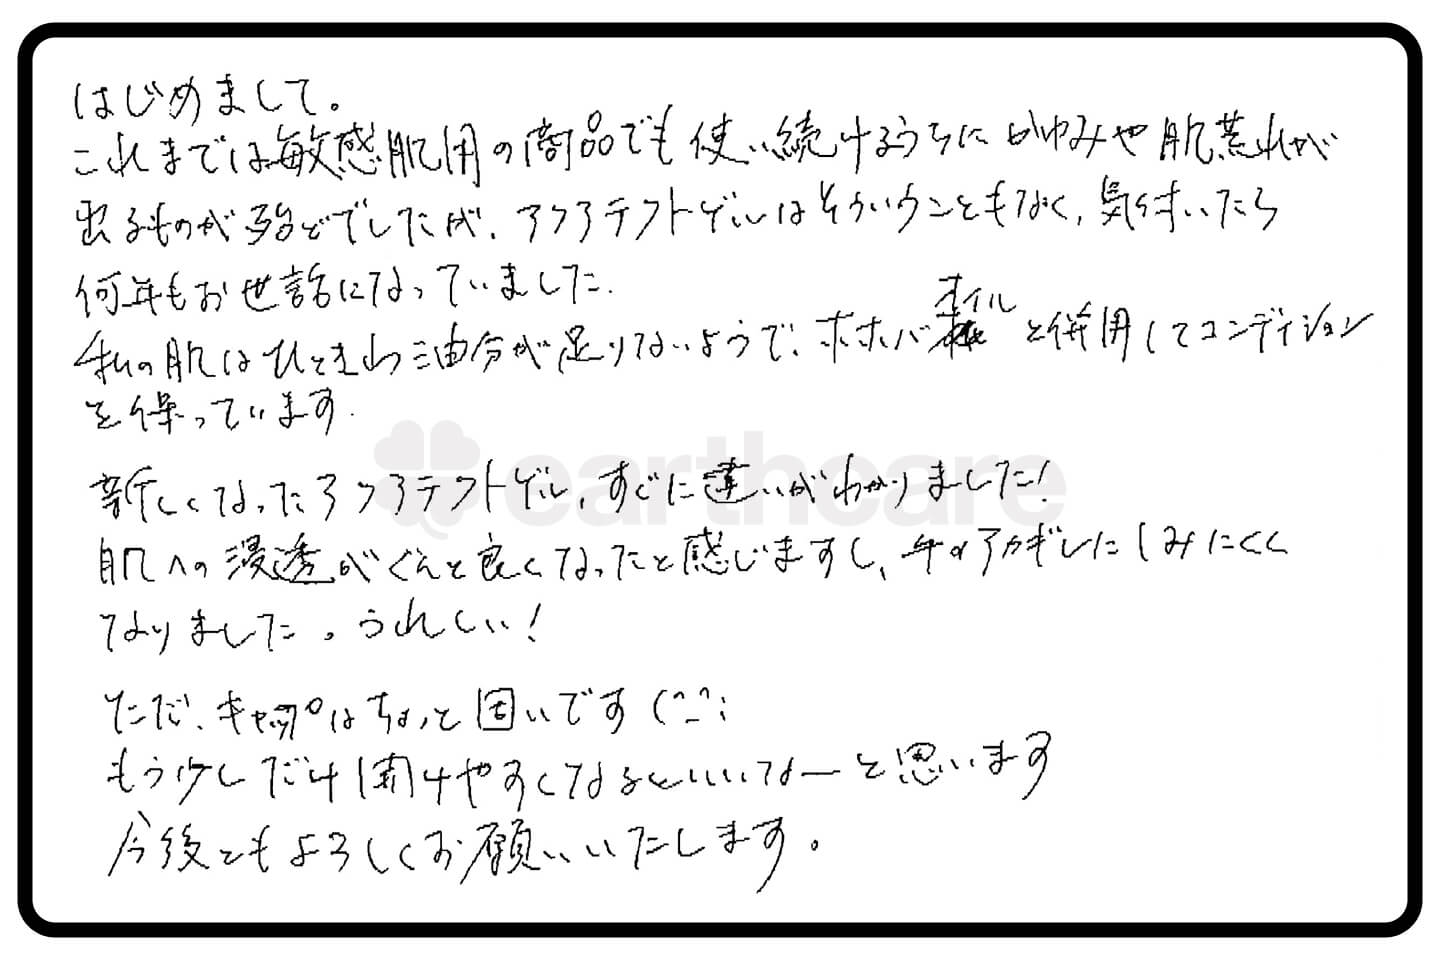 はじめまして。
これまでは敏感肌用の商品でも使い続けるうちにかゆみや肌荒れが
出るものが殆どでしたが、アクアテクトゲルはそういうこともなく、気付いたら
何年もお世話になっていました.
私の肌はひときわ油分が足りないようで、ホホバオイルと併用してコンディション
を保っています.
earthcare
新しくなったアクアテクトゲル、すぐに違いがわかりました!
肌への浸透がぐんと良くなったと感じますし、手のアカギレにしみにくく
なりました。うれしい!
ただ、キャップはちょっと固いです(^_^;
もう少しだけ開けやすくなるといいなーと思います
今後ともよろしくお願いいたします。